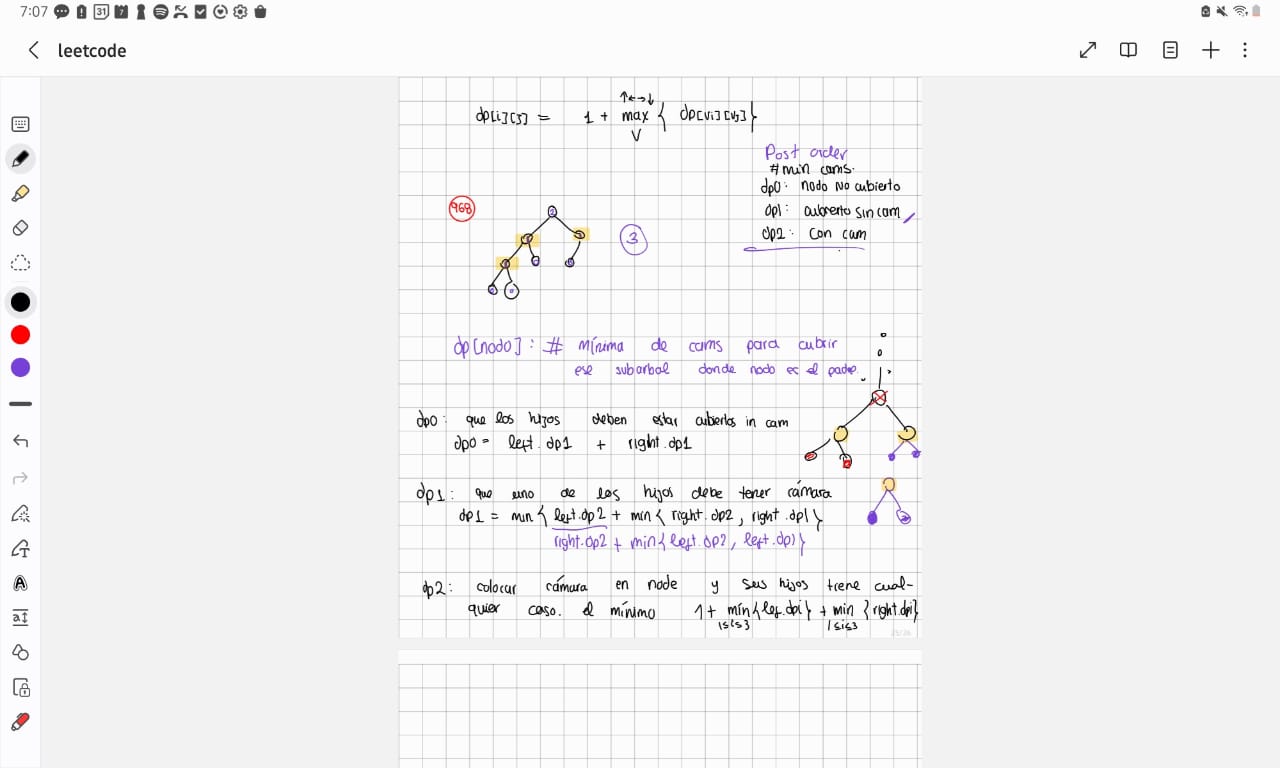 7:07
leetcode
dp[i][j] = 1 + max { dp[vi][vj] }
V
Post order
# min cams.
dp0: nodo no cubierto
dp1: cubierto sin cam
dp2: con cam
968
3
dp[nodo]: # mínima de cams para cubrir
ese subarbol donde nodo es el padre.
dp0: que los hijos deben estar cubiertos sin cam
dp0 = left.dp1 + right.dp1
dp1: que uno de los hijos debe tener cámara
dp1 = min{ left.dp2 + min{ right.dp2, right.dp1}
right.dp2 + min{left.dp2, left.dp1}}
dp2: colocar cámara en node y sus hijos tiene cual-
quier caso. el mínimo 1 + min{lef.dpi} + min {right.dpi}
1≤i≤3 1≤i≤3
25/26